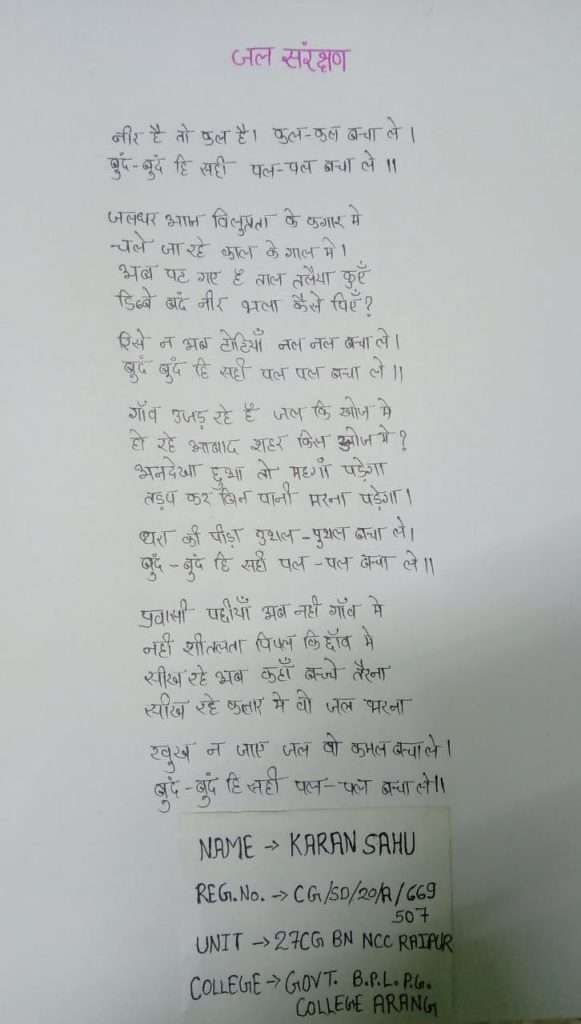 जल संरक्षण
नीर है तो कुल है। कुल-कुल बचा ले।
बुंद-बुंद हि सही पल-पल बचा ले॥
जलधर आज विलुप्रता के कगार मे
चले जा रहे काल के गाल मे।
अब पट गए हैं ताल तलैया कुएँ
डिब्बे बदं नीर भला कैसे पिएँ?
रिसे न अब टोटियाँ नल नल बचा ले।
बुदं बुदं हि सही पल पल बचा ले॥
गाँव उजड़ रहे हैं जल कि खोज मे
हो रहे आबाद शहर किस ओज मे?
अनदेखा हुआ तो महगाँ पड़ेगा
तड़प कर बिन पानी मरना पड़ेगा।
धरा की पीड़ा कुथल-पुथल बचा ले।
बुदं-बुदं हि सही पल-पल बचा ले॥
प्रवासी पछीयाँ अब नही गाँव मे
नही शीतलता पिपल कि छाँव मे
सीख रहे अब कहाँ बच्चे तैरना
सीख रहे कतार मे वो जल भरना
सुख न जाए जल वो कमल बचा ले।
बुदं-बुदं हि सही पल-पल बचा ले॥
NAME → KARAN SAHU
REG.No. → CG/SD/20/A/669
507
UNIT → 27CG BN NCC RAIPUR
COLLEGE → GOVT. B.P.L.P.G.
COLLEGE ARANG